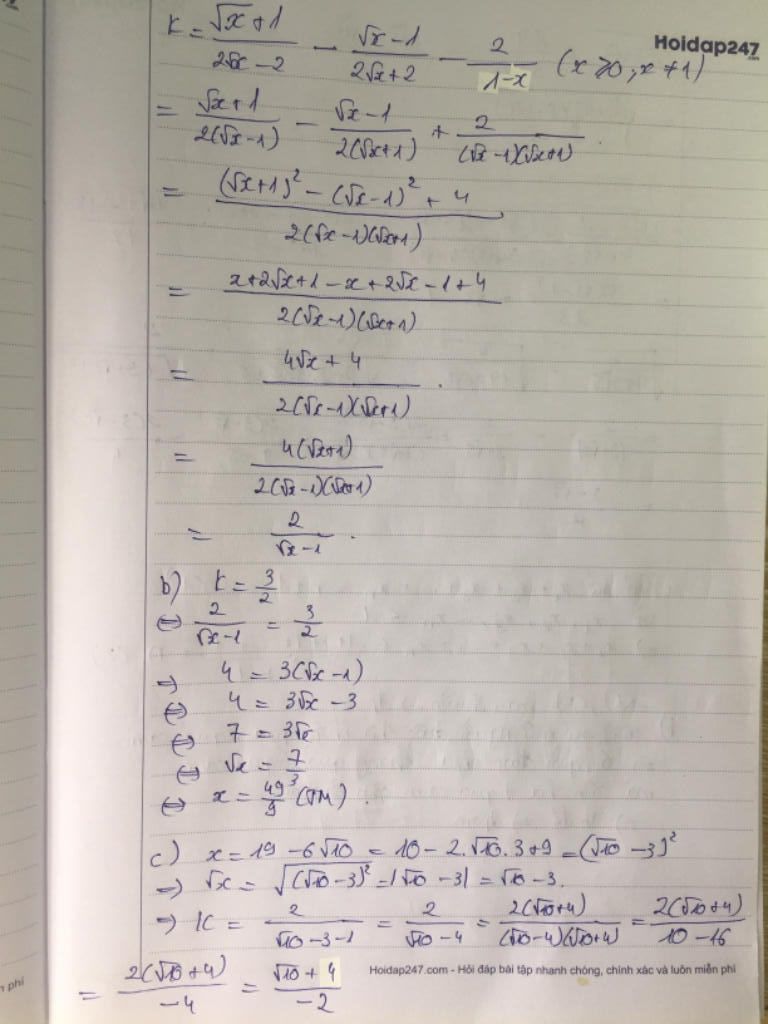 Hoidap247
.com
K = (√x + 1)/(2√x − 2) − (√x − 1)/(2√x + 2) − 2/(1 − x) (x ≥ 0, x ≠ 1)
= (√x + 1)/(2(√x − 1)) − (√x − 1)/(2(√x + 1)) + 2/((√x − 1)(√x + 1))
= ((√x + 1)² − (√x − 1)² + 4)/(2(√x − 1)(√x + 1))
= (x + 2√x + 1 − x + 2√x − 1 + 4)/(2(√x − 1)(√x + 1))
= (4√x + 4)/(2(√x − 1)(√x + 1)).
= (4(√x + 1))/(2(√x − 1)(√x + 1))
= 2/(√x − 1).
b) K = 3/2
⇔ 2/(√x − 1) = 3/2
⇒ 4 = 3(√x − 1)
⇔ 4 = 3√x − 3
⇔ 7 = 3√x
⇔ √x = 7/3
⇔ x = 49/9 (TM).
c) x = 19 − 6√10 = 10 − 2.√10.3 + 9 = (√10 − 3)²
⇒ √x = √((√10 − 3)²) = |√10 − 3| = √10 − 3.
⇒ K = 2/(√10 − 3 − 1) = 2/(√10 − 4) = 2(√10 + 4)/((√10 − 4)(√10 + 4)) = 2(√10 + 4)/(10 − 16)
= 2(√10 + 4)/(−4) = (√10 + 4)/(−2)
Hoidap247.com - Hỏi đáp bài tập nhanh chóng, chính xác và luôn miễn phí
n phí